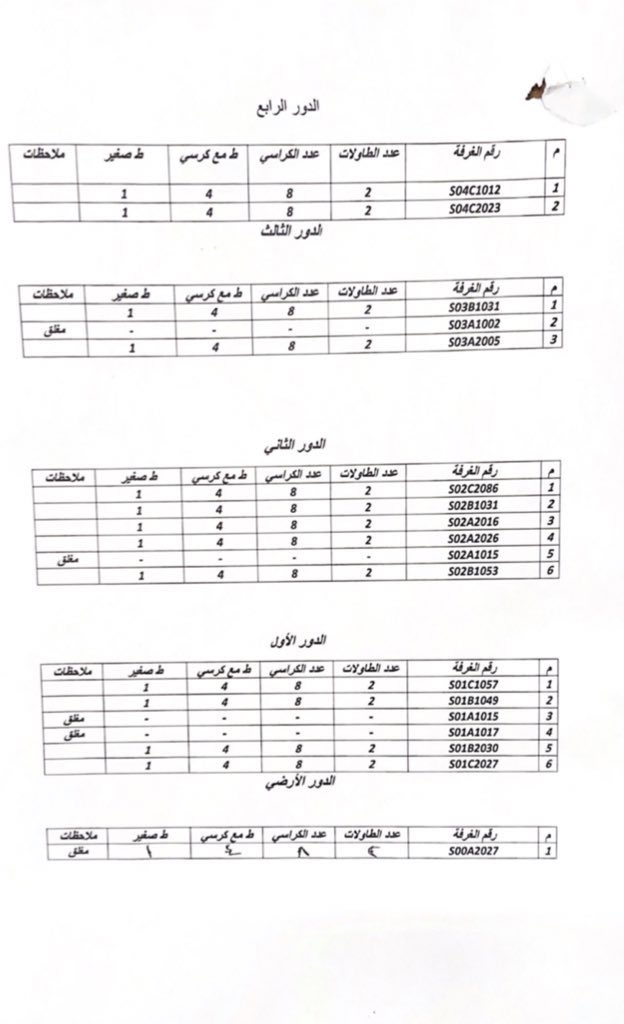 الدور الرابع
م رقم الغرفة عدد الطاولات عدد الكراسي ط مع كرسي ط صغير ملاحظات
1 S04C1012 2 8 4 1
2 S04C2023 2 8 4 1
الدور الثالث
م رقم الغرفة عدد الطاولات عدد الكراسي ط مع كرسي ط صغير ملاحظات
1 S03B1031 2 8 4 1
2 S03A1002 - - - - مغلق
3 S03A2005 2 8 4 1
الدور الثاني
م رقم الغرفة عدد الطاولات عدد الكراسي ط مع كرسي ط صغير ملاحظات
1 S02C2086 2 8 4 1
2 S02B1031 2 8 4 1
3 S02A2016 2 8 4 1
4 S02A2026 2 8 4 1
5 S02A1015 - - - - مغلق
6 S02B1053 2 8 4 1
الدور الأول
م رقم الغرفة عدد الطاولات عدد الكراسي ط مع كرسي ط صغير ملاحظات
1 S01C1057 2 8 4 1
2 S01B1049 2 8 4 1
3 S01A1015 - - - - مغلق
4 S01A1017 - - - - مغلق
5 S01B2030 2 8 4 1
6 S01C2027 2 8 4 1
الدور الأرضي
م رقم الغرفة عدد الطاولات عدد الكراسي ط مع كرسي ط صغير ملاحظات
1 S00A2027 ٨ ٤ ١ مغلق